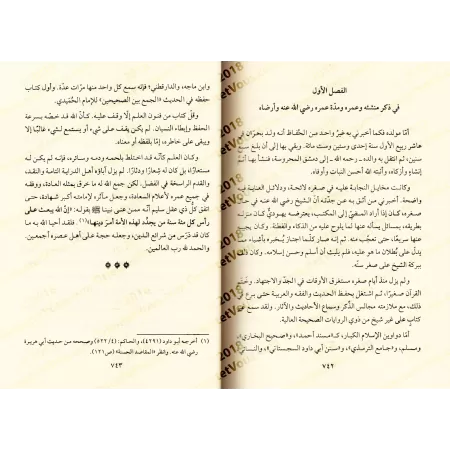 الفصل الأول
في ذكر منشئه وعمره ومدّة عمره رضي الله عنه وأرضاه
أمّا مولده فكما أخبرني به غير واحد من الحفّاظ أنه ولد بحرّان في
عاشر ربيع الأول سنة إحدى وستين وستّ مائة، وبقي بها إلى أن بلغ سبع
سنين، ثم انتقل به والده ـ رحمه الله ـ إلى دمشق المحروسة، فنشأ بها أتمّ
إنشاءٍ وأزكاه، وأنبته الله أحسن النبات وأوفاه.
وكانت مخايل النجابة عليه في صغره لائحة، ودلائل العناية فيه
واضحة. أخبرني من أثق به عن من حدّثه أنّ الشيخ رضي الله عنه في حال
صغره كان إذا أراد المضيّ إلى المكتب، يعترضه يهوديٌّ كان منزله
بطريقه، بمسائل يسأله عنها لما يلوح عليه من الذكاء والفطنة، وكان يجيبه
عنها سريعًا، حتى تعجّب منه. ثم إنه صار كلّما اجتاز به يخبره بأشياء مما
يدلّ على بُطلان ما هو عليه، فلم يلبث أن أسلم وحسن إسلامه. وكان ذلك
ببركة الشيخ على صغر سنّه.
ولم يزل منذ أيام صغره مستغرق الأوقات في الجدّ والاجتهاد. وختم
القرآن صغيرًا، ثم اشتغل بحفظ الحديث والفقه والعربية حتى برع في
ذلك، مع ملازمته مجالس الذكر وسماع الأحاديث والآثار. ولقد سمع غير
كتاب على غير شيخ من ذوي الروايات الصحيحة العالية.
أمّا دواوين الإسلام الكبار، كـ«مسند أحمد»، و«صحيح البخاري»،
ومسلم، و«جامع الترمذي»، و«سنن أبي داود السجستاني»، والنسائي
٧٤٢
وابن ماجه، والدارقطني؛ فإنه سمع كل واحد منها مرّات عدّة. وأول كتاب
حفظه في الحديث «الجمع بين الصحيحين» للإمام الحُميدي.
وقلّ كتاب من فنون العلم إلّا وقف عليه. كأنّ الله قد خصّه بسرعة
الحفظ وإبطاء النسيان. لم يكن يقف على شيء أو يستمع لشيء غالبًا إلا
ويبقى على خاطره، إمّا بلفظه أو معناه.
وكان العلم كأنّه قد اختلط بلحمه ودمه وسائره، فإنه لم يكن له
مستعارًا بل كان له شعارًا ودثارًا. لم يزل آباؤه أهل الدراية التامة والنقد،
والقدم الراسخة في الفضل. لكن جمع الله له ما خرق بمثله العادة، ووفقه
في جميع عمره لأعلام السعادة، وجعل مآثره لإمامته أكبر شهادة، حتى
اتفق كلّ ذي عقل سليم أنّه ممن عنى نبينا ﷺ بقوله: «إنّ الله يبعث على
رأس كلّ مئة سنة من يجدّد لهذه الأمة أمر دينها»(١). فلقد أحيا الله به ما
كان قد دَرَس من شرائع الدين، وجعله حجة على أهل عصره أجمعين.
والحمد لله رب العالمين.
(١) أخرجه أبو داود (٤٢٩١)، والحاكم: (٤/ ٥٢٢) وصححه من حديث أبي هريرة
رضي الله عنه. وانظر «المقاصد الحسنة» (ص١٢١).
٧٤٣